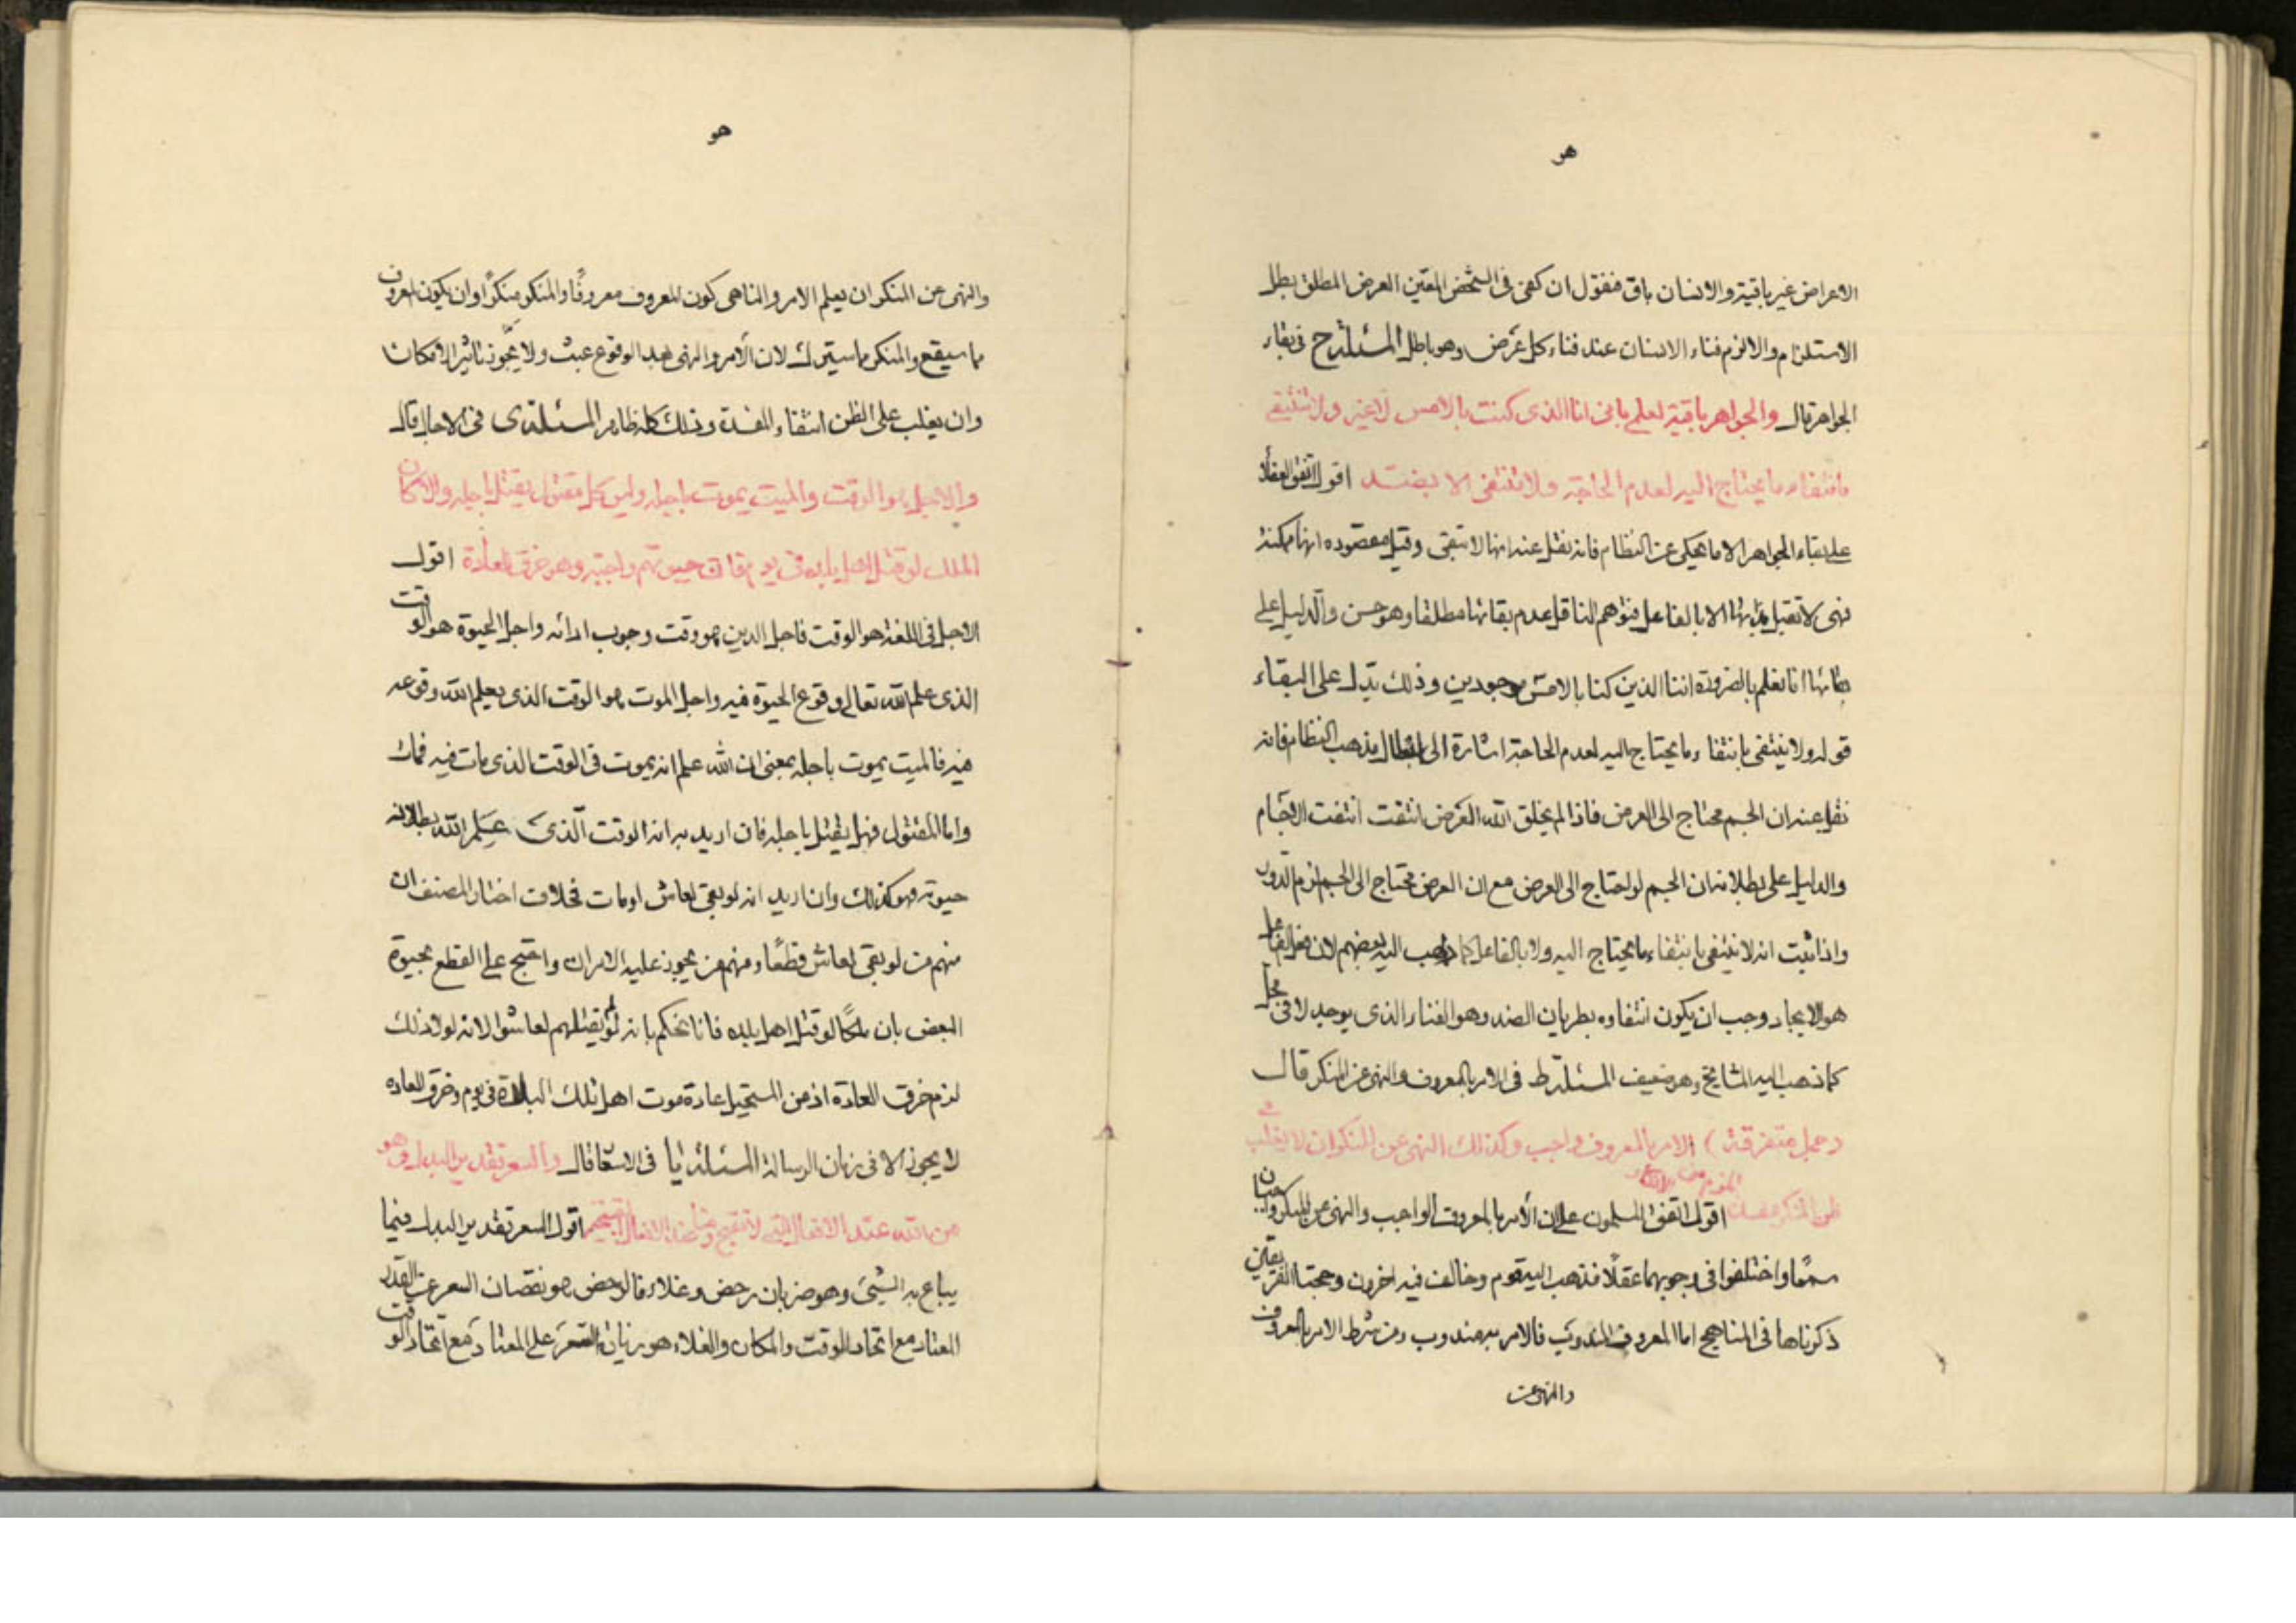 هو
الاعراض غير باقية والانسان باق فنقول ان كفى فى الشخص المعين العرض المطلق بطل
الاستلزام والالزم فناء الانسان عند فناء كل عرض وهو باطل المسئلة رح فى بقاء
الجواهر قال والجواهر باقية لعلم بانى انا الذى كنت بالامس لا غير ولا تنتفى
بانتفاء ما يحتاج اليه لعدم الحاجة ولا تنتفى الا بضد اقول اتفق العقلا
على بقاء الجواهر الا ما يحكى عن النظام فانه نقل عنه انها لا تبقى وقيل مقصوده انها ممكنة
فهى لا تقبل بذاتها الا بالفاعل فتوهم الناقل عدم بقائها مطلقا وهو حسن والدليل على
بقائها انا نعلم بالضرورة اننا الذين كنا بالامس موجودين وذلك يدل على البقاء
قوله ولا ينتفى بانتفاء ما يحتاج اليه لعدم الحاجة اشارة الى ابطال مذهب النظام فانه
نقل عنه ان الجسم محتاج الى العرض فاذا لم يخلق الله العرض انتفت الاجسام
والدليل على بطلانه ان الجسم لو احتاج الى العرض مع ان العرض محتاج الى الجسم لزم الدور
واذا ثبت انه لا ينتفى بانتفاء ما يحتاج اليه ولا بالفاعل كما ذهب اليه بعضهم لان فعل الفاعل
هو الايجاد وجب ان يكون انتفاوه بطريان الضد وهو الفناء الذى يوجد لا فى محل
كما ذهب اليه المشايخ وهو ضعيف المسئلة رط فى الامر بالمعروف والنهى عن المنكر قال
وجمل متفرقة الامر بالمعروف واجب وكذلك النهى عن المنكر ان لا يغلب
ظن اقول اتفق المسلمون على ان الأمر بالمعروف الواجب والنهى عن المنكر واجبان
سمعًا واختلفوا فى وجوبهما عقلًا فذهب اليه قوم وخالف فيه اخرون وحجتا الفريقين
ذكرناها فى المناهج اما المعروف المندوب فالامر به مندوب ومن شرط الامر بالمعروف
والنهى عن
هو
والنهى عن المنكر ان يعلم الامر والناهى كون المعروف معروفًا والمنكر منكرًا وان يكون المعروف
ما سيقع والمنكر ما سيترك لان الأمر والنهى بعد الوقوع عبث ولا يجوز تاثير الانكار
وان يغلب على الظن انتفاء المفسدة وذلك كله ظاهر المسئلة رى فى الاجال قال
والاجل هو الوقت والميت يموت باجله وليس كل مقتول يقتل باجله والا لكان
الملك لو قتل اهل بلده فى يوم فان حيوتهم واجبة وهو خرق العادة اقول
الاجل فى اللغة هو الوقت فاجل الدين هو وقت وجوب ادائه واجل الحيوة هو الوقت
الذى علم الله تعالى وقوع الحيوة فيه واجل الموت هو الوقت الذى يعلم الله وقوعه
فيه فالميت يموت باجله بمعنى ان الله علم انه يموت فى الوقت الذى مات فيه
واما المقتول فهل يقتل باجله فان اريد به انه الوقت الّذى علم الله بطلان
حيوته فهو كذلك وان اريد انه لو بقى لعاش او مات فخلاف اختار المصنف ان
منهم من لو بقى لعاش قطعًا ومنهم من يجوز عليه الامران واحتج على القطع بحيوة
البعض بان ملكًا لو قتل اهل بلده فانا نحكم بانه لو لم يقتلهم لعاشوا لانه لولا ذلك
لزم خرق العادة اذ من المستحيل عادة موت اهل تلك البلدة فى يوم وخرق العاده
لا يجوز الا فى زمان الرسالة المسئلة فى الاسعار قال والسعر تقدير البدل وهو
من الله عند الافعال التى لا تقبح اقول السعر تقدير البدل فيما
يباع به الشيئ وهو ضربان رخص وغلاء فالرخص هو نقصان السعر عن القدر
المعتاد مع اتحاد الوقت والمكان والغلاء هو زيادة السعر على المعتاد مع اتحاد الوقت